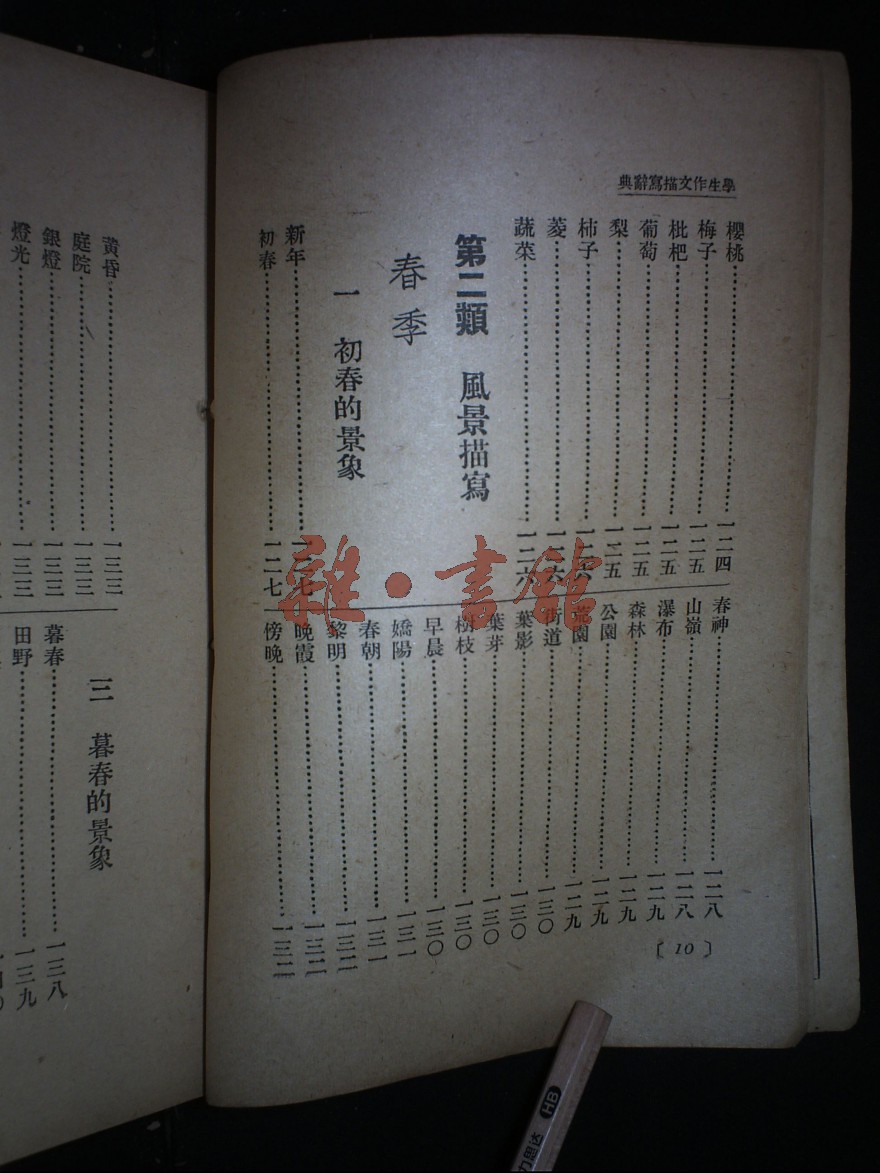 學生作文描寫辭典
櫻桃……一二四
梅子……一二五
枇杷……一二五
葡萄……一二五
梨……一二五
柿子……一二六
菱……一二六
蔬菜……一二六
第二類 風景描寫
春季
一 初春的景象
新年……一二七
初春……一二七
春神……一二八
山嶺……一二八
瀑布……一二九
森林……一二九
公園……一二九
荒園……一二九
街道……一三〇
葉影……一三〇
葉芽……一三〇
樹枝……一三〇
早晨……一三〇
嬌陽……一三一
春朝……一三一
黎明……一三二
晚霞……一三二
傍晚……一三二
〔10〕
黃昏……一三三
庭院……一三三
銀燈……一三三
燈光……一三三
三 暮春的景象
暮春……一三八
田野……一三九
雜·書館
HB